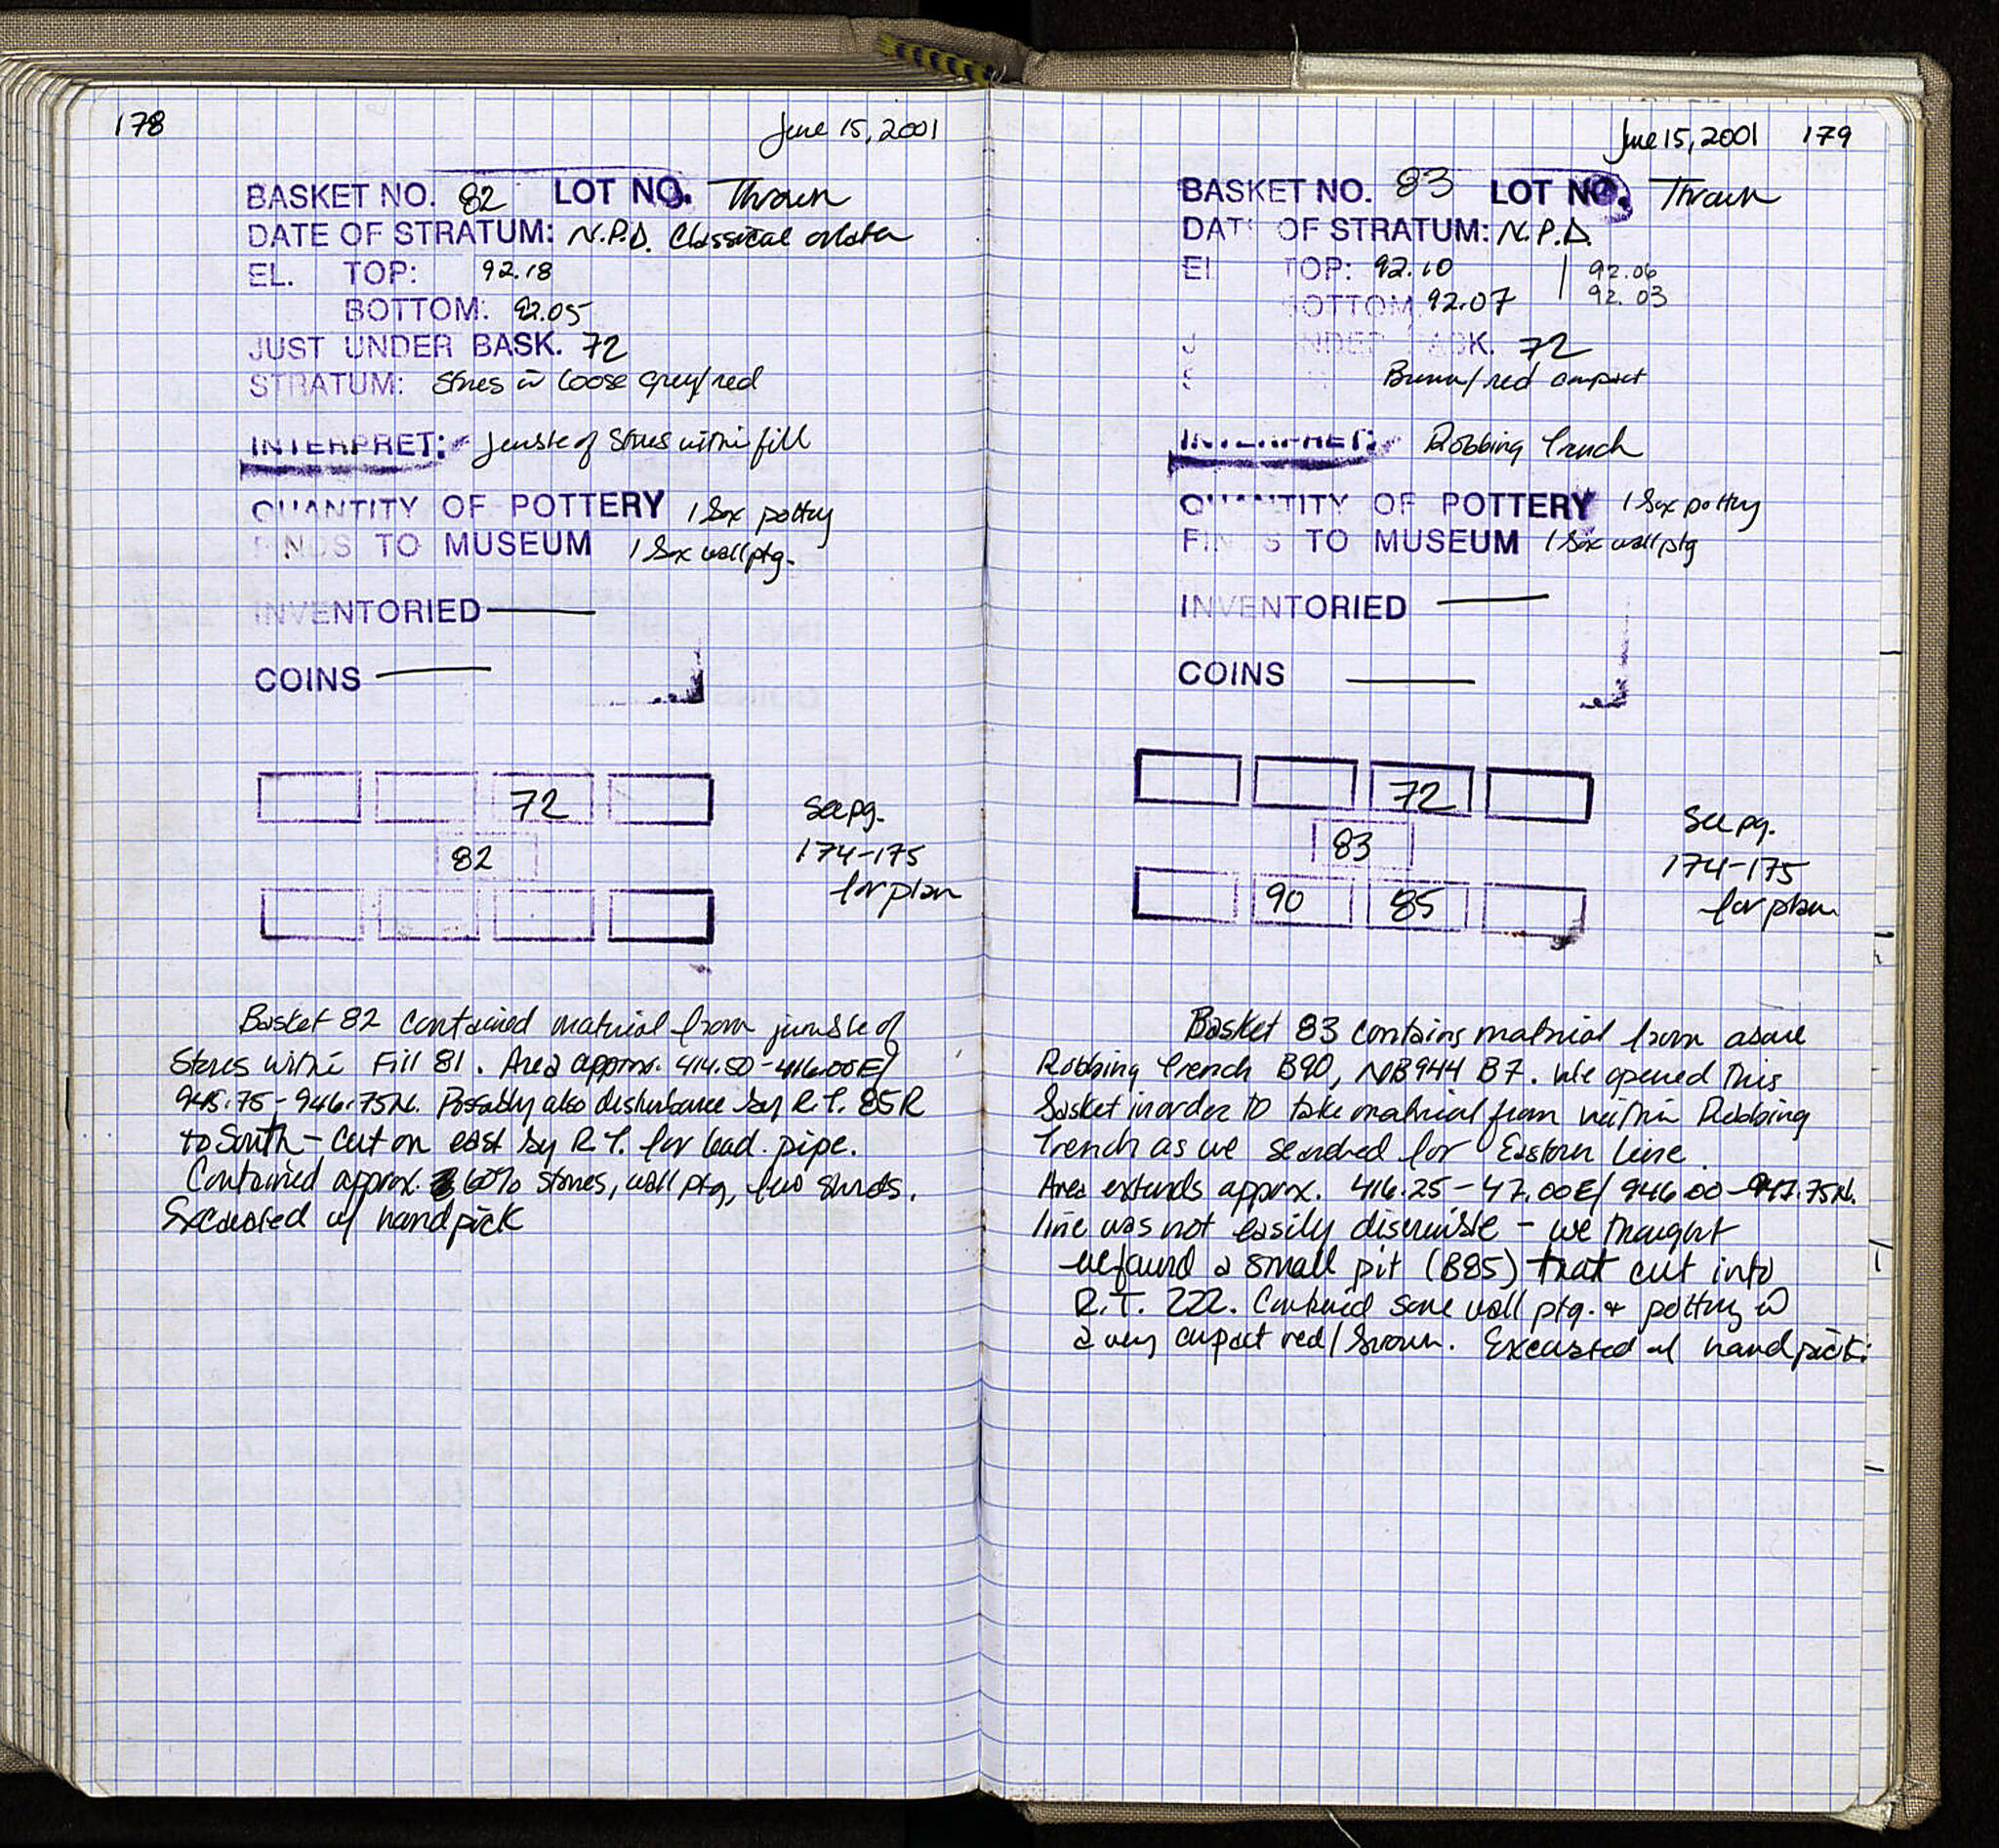 178
June 15, 2001
BASKET NO. 82 LOT NO. Thrown
DATE OF STRATUM: N.P.D. Classical or later
EL. TOP: 92.18
BOTTOM: 92.05
JUST UNDER BASK. 72
STRATUM: stones in loose grey/red
INTERPRET: jumble of stones within fill
QUANTITY OF POTTERY 1 box pottery
FINDS TO MUSEUM 1 box wall ptg.
INVENTORIED —
COINS —
72
82
See pg.
174-175
for plan
Basket 82 contained material from jumble of
stones within Fill 81. Area approx. 414.50-416.00E/
945.75-946.75N. Possibly also disturbance by R.T. 85R
to south - cut on east by R.T. for lead pipe.
Contained approx. 60% stones, wall ptg, few sherds.
Excavated w/ handpick
June 15, 2001 179
BASKET NO. 83 LOT NO. Thrown
DAT OF STRATUM: N.P.D.
El TOP: 92.10 | 92.06
BOTTOM 92.07 92.03
J UNDER BASK. 72
S Brown/red compact
INTERPRET: Robbing trench
QUANTITY OF POTTERY 1 box pottery
FINDS TO MUSEUM 1 box wall ptg
INVENTORIED —
COINS —
72
83
90 85
See pg.
174-175
for plan
Basket 83 contains material from above
Robbing trench B90, NB944 B7. We opened this
basket in order to take material from within Robbing
trench as we searched for Eastern line.
Area extends approx. 416.25-47.00E/ 946.00-947.75N.
line was not easily discernible - we thought
we found a small pit (B85) that cut into
R.T. 222. Contained some wall ptg. + pottery in
a very compact red/brown. Excavated w/ handpick.